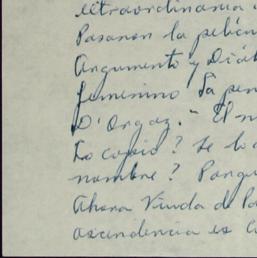 extraordinaria
Pasaron la pelícu
Argumento y Diál
femenino la pen
D'Orgaz." El n
Lo copió? Se lo
nombre? Porqu
Ahora Viuda de Pa
ascendencia es